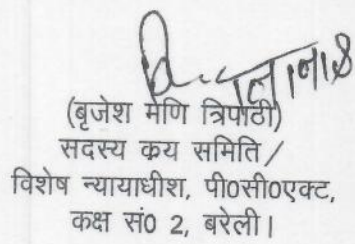 (बृजेश मणि त्रिपाठी)
सदस्य कय समिति /
विशेष न्यायाधीश, पी0सी0एक्ट,
कक्ष सं0 2, बरेली।